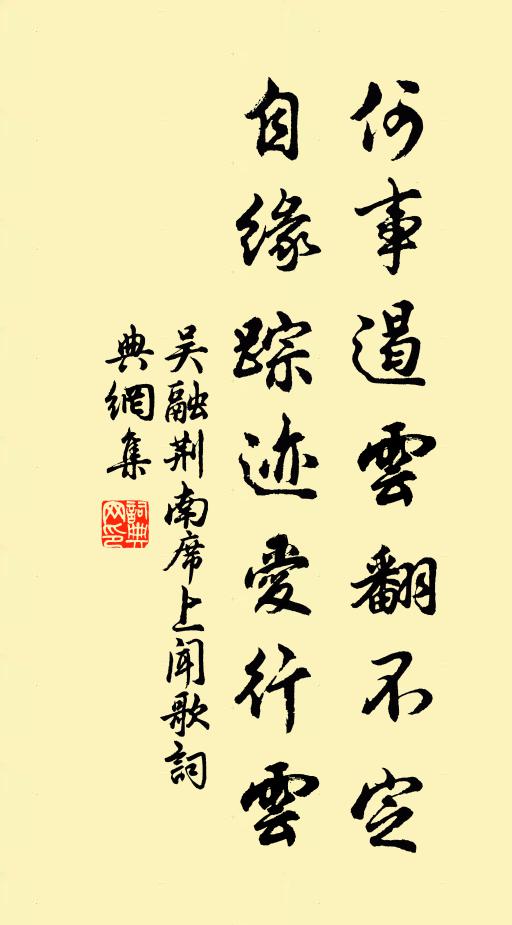 何事遏雲翻不定
自缘踪迹愛行雲
吴融荆南席上聞歌詞
典網集
詞典網印